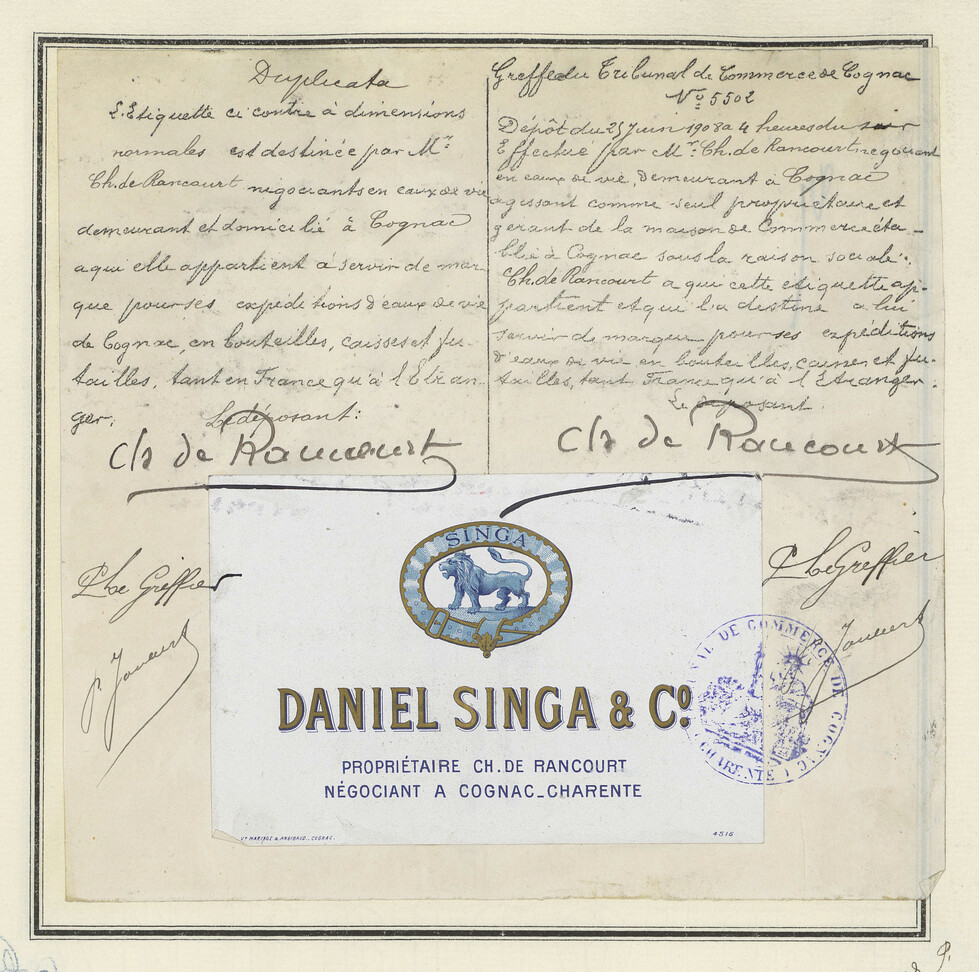 Duplicata
L'Etiquette ci contre à dimensions
normales est destinée par Mr
Ch. de Rancourt négociants en eaux de vie
demeurant et domicilié à Cognac
a qui elle appartient à servir de mar-
que pour ses expéditions d'eaux de vie
de Cognac, en bouteilles, caisses et fu-
tailles, tant en France qu'à l'Etran-
ger.
Le déposant:
Ch de Rancourt
P. Le Greffier
Greffe du Tribunal de Commerce de Cognac
No 5502
Dépôt du 25 Juin 1908 a 4 heures du soir
Effectué par Mr. Ch. de Rancourt négociant
en eaux de vie, demeurant à Cognac
agissant comme seul propriétaire et
gérant de la maison de Commerce éta-
blie à Cognac sous la raison sociale:
Ch. de Rancourt a qui cette etiquette ap-
partient et qui l'a destine a lui
servir de marque pour ses expéditions
d'eaux de vie en bouteilles, caisses et fu-
tailles, tant France qu'à l'Etranger.
Le déposant
Ch de Rancourt
P. Le Greffier
SINGA
DANIEL SINGA & Co.
PROPRIÉTAIRE CH. DE RANCOURT
NÉGOCIANT A COGNAC_CHARENTE
COGNAC.
4516
DE COMMERCE DE COGNAC
(CHARENTE)